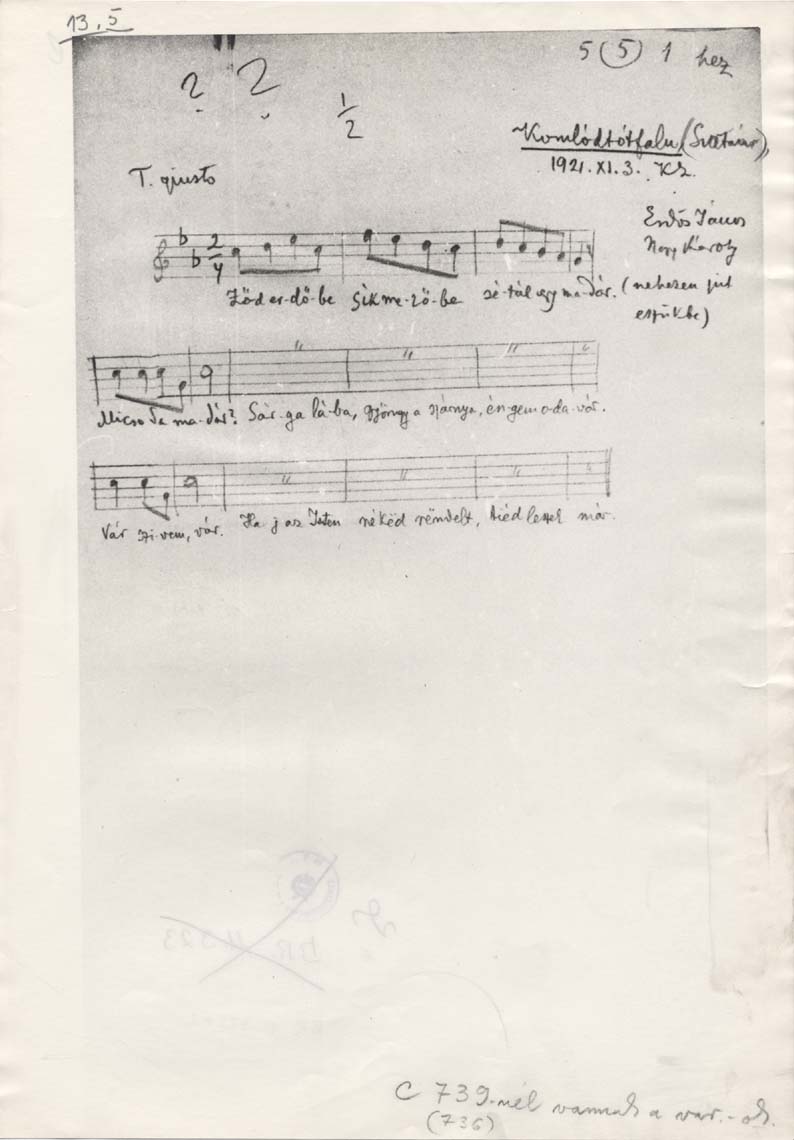 13.5
5 (5) 1 hez
? ?
1/2
Komlódtótfalu (Szatmár),
1921. XI. 3. KZ.
T. giusto
Erdős János
Nagy Károly
(nehezen jut
eszükbe)
2/4
Zöd er-dő-be sik me-ző-be sé-tál egy ma-dár.
Micso da ma-dár? Sár-ga lá-ba, gyöngy a szárnya, én-gem o-da-vár.
Vár szi-vem, vár. Ha j az Isten nékëd rëndelt, tiéd leszek már.
DR 11323
C 739-nél vannak a var.-ok.
(736)